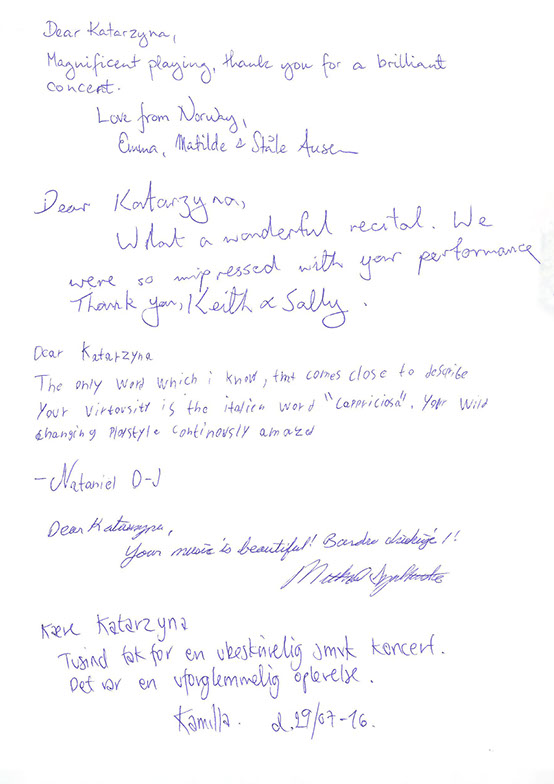 Dear Katarzyna,
Magnificent playing, thank you for a brilliant
concert.
Love from Norway,
Emma, Matilde & Ståle Ausen
Dear Katarzyna,
What a wonderful recital. We
were so impressed with your performance
Thank you, Keith & Sally.
Dear Katarzyna
The only word which i know, that comes close to describe
Your Virtuosity is the italien word "Cappriciosa". Your wild
changing Playstyle continously amazed
- Nataniel D-J
Dear Katarzyna,
Your music is beautiful! Bardzo dziękuję!!
Kære Katarzyna
Tusind tak for en ubeskrivelig smuk koncert.
Det var en uforglemmelig oplevelse.
Kamilla. d.29/07-16.